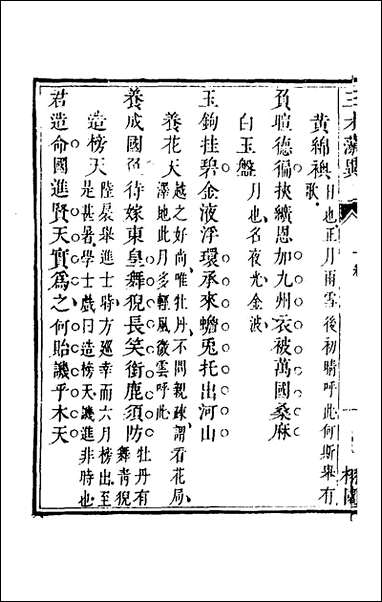 黄綿襖 日也正月雨雪後初晴呼此何斯舉有歌
負暄德徧挾纊恩加九州衣被萬國桑麻
白玉盤 月也名夜光金波
玉鉤挂碧金液浮環承來蟾兎托出河山
養花天 越之好尚唯牡丹不問親疎謂看花局澤地此月多輕風微雲呼此
養成國色待嫁東皇舞猊長笑銜鹿須防 牡丹有舞青猊
造榜天 陸扆舉進士時方巡幸而六月榜出至是甚暑學士戲曰造榜天譏進非時也
君造命國進賢天實爲之何貽譏乎木天